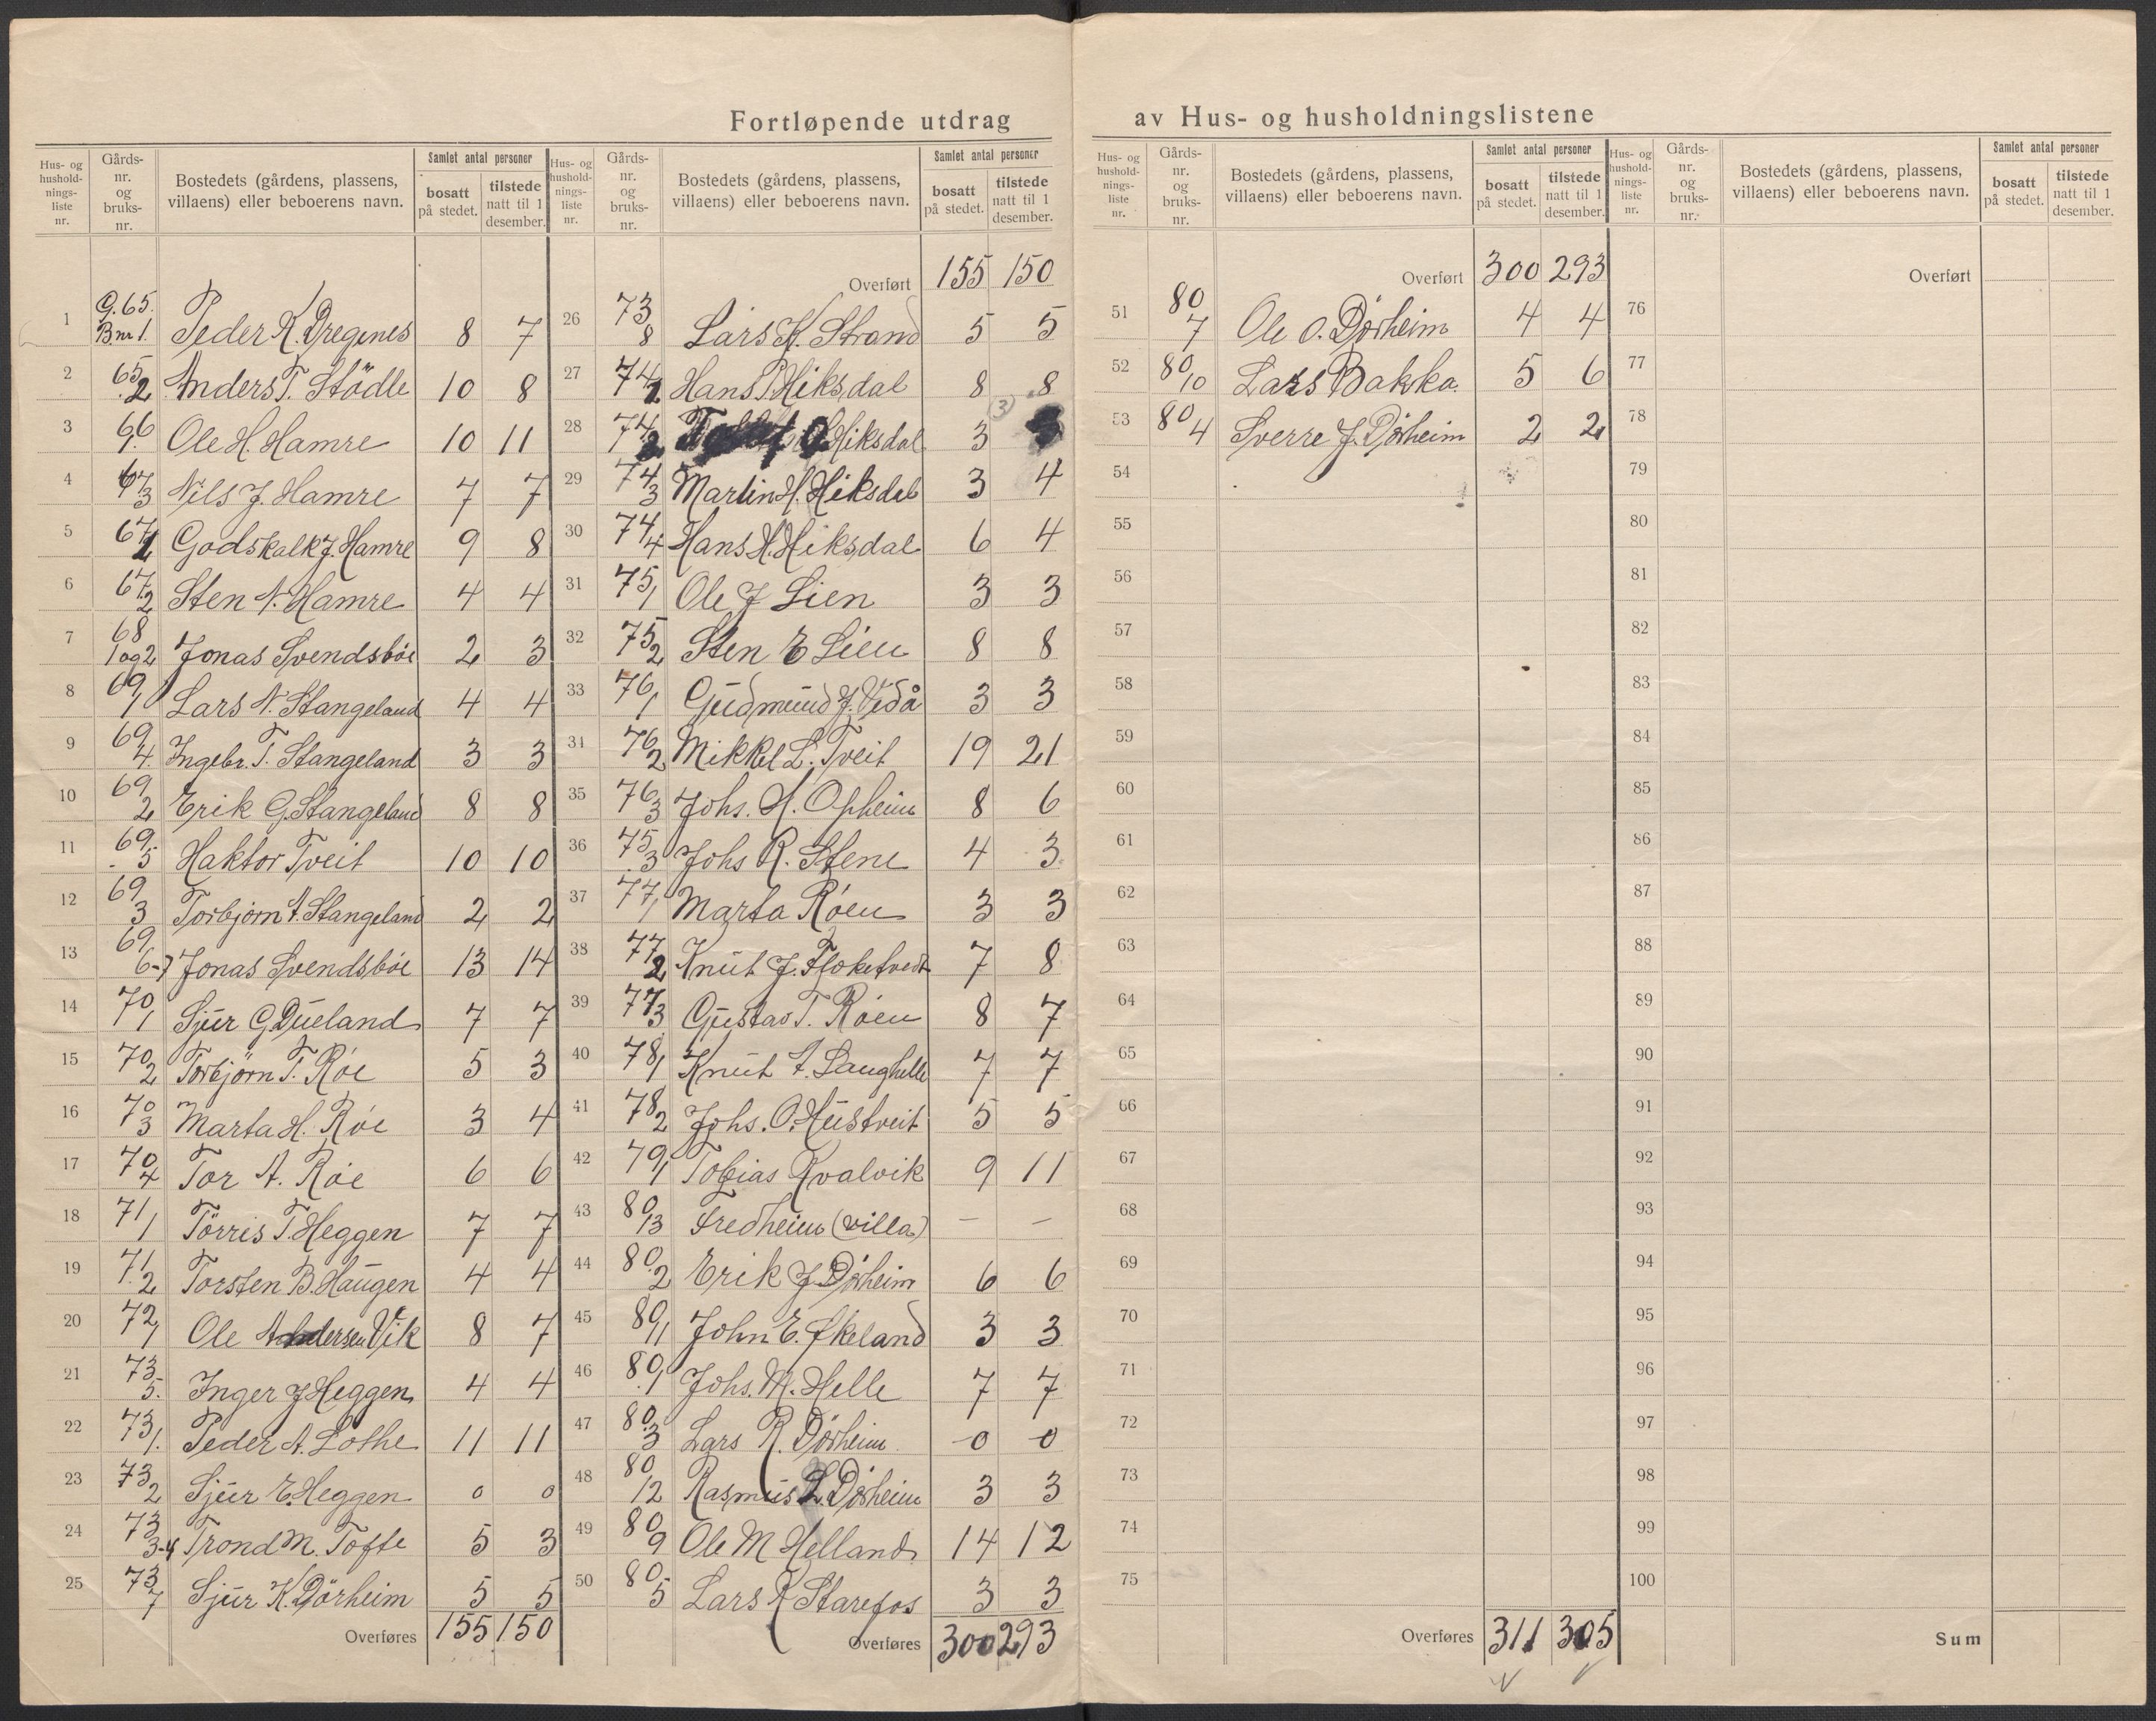 Fortløpende utdrag av Hus- og husholdningslistene
Hus- og hushold-nings-liste nr. Gårds-nr. og bruks-nr. Bostedets (gårdens, plassens, villaens) eller beboerens navn. Samlet antal personer bosatt på stedet. tilstede natt til 1 desember.
1 G. 65. B.nr 1. Peder K. Dregenes 8 7
2 65 2 Anders T. Stödle 10 8
3 66 1. Ole H. Hamre 10 11
4 67 3 Nils J. Hamre 7 7
5 67 1 Godskalk J. Hamre 9 8
6 67 2 Sten N. Hamre 4 4
7 68 1 og 2 Jonas Svendsbóe 2 3
8 69 1 Lars N. Stangeland 4 4
9 69 4. Ingebr. T. Stangeland 3 3
10 69 2 Erik G. Stangeland 8 8
11 69 5 Haktor Tveit 10 10
12 69 3 Torbjørn A. Stangeland 2 2
13 69 6-7 Jonas Svendsbóe 13 14
14 70 1 Sjur G. Dueland 7 7
15 70 2 Torbjörn T. Róe 5 3
16 70 3 Marta H. Róe 3 4
17 70 4 Tor A. Róe 6 6
18 71 1 Törris T. Heggen 7 7
19 71 2 Torsten B. Haugen 4 4
20 72 1 Ole Andersen Vik 8 7
21 73 5. Inger J Heggen 4 4
22 73 1. Peder A. Lothe 11 11
23 73 2 Sjur E. Heggen 0 0
24 73 3-4 Trond M. Tofte 5 3
25 73 7 Sjur K. Dörheim 5 5
Overføres 155 150
Hus- og hushold-nings-liste nr. Gårds-nr. og bruks-nr. Bostedets (gårdens, plassens, villaens) eller beboerens navn. Samlet antal personer bosatt på stedet. tilstede natt til 1 desember.
Overført 155 150
26 73 8 Lars K. Strand 5 5
27 74 1 Hans P. Hiksdal 8 8
28 74 2 Hiksdal 3 (3)
29 74 3 Martin H. Hiksdal 3 4
30 74 4 Hans H. Hiksdal 6 4
31 75 1 Ole J Lien 3 3
32 75 2 Sten E Lien 8 8
33 76 1 Gudmund J. Vedå 3 3
34 76 2 Mikkel L. Tveit 19 21
35 76 3 Johs. H. Opheim 8 6
36 75 3 Johs R. Stene 4 3
37 77 1 Marta Róen 3 3
38 77 2 Knut J. Floketvedt 7 8
39 77 3 Gustav T. Róen 8 7
40 78 1 Knut A. Langhelle 7 7
41 78 2 Johs. O. Hustveit 5 5
42 79 1 Tobias Kvalvik 9 11
43 80 13 Fredheim (villa) — —
44 80 2 Erik J. Dórheim 6 6
45 80 11 John E. Ekeland 3 3
46 80 1 Johs. M. Helle 7 7
47 80 3 Lars R. Dórheim 0 0
48 80 12 Rasmus L. Dórheim 3 3
49 80 9 Ole M Helland 14 12
50 80 5 Lars K Starefos 3 3
Overføres 300 293
Hus- og hushold-nings-liste nr. Gårds-nr. og bruks-nr. Bostedets (gårdens, plassens, villaens) eller beboerens navn. Samlet antal personer bosatt på stedet. tilstede natt til 1 desember.
Overført 300 293
51 80 7 Ole O. Dórheim 4 4
52 80 10 Lars Bakka. 5 6
53 80 4 Sverre J. Dórheim 2 2
54
55
56
57
58
59
60
61
62
63
64
65
66
67
68
69
70
71
72
73
74
75
Overføres 311 305
Hus- og hushold-nings-liste nr. Gårds-nr. og bruks-nr. Bostedets (gårdens, plassens, villaens) eller beboerens navn. Samlet antal personer bosatt på stedet. tilstede natt til 1 desember.
Overført
76
77
78
79
80
81
82
83
84
85
86
87
88
89
90
91
92
93
94
95
96
97
98
99
100
Sum